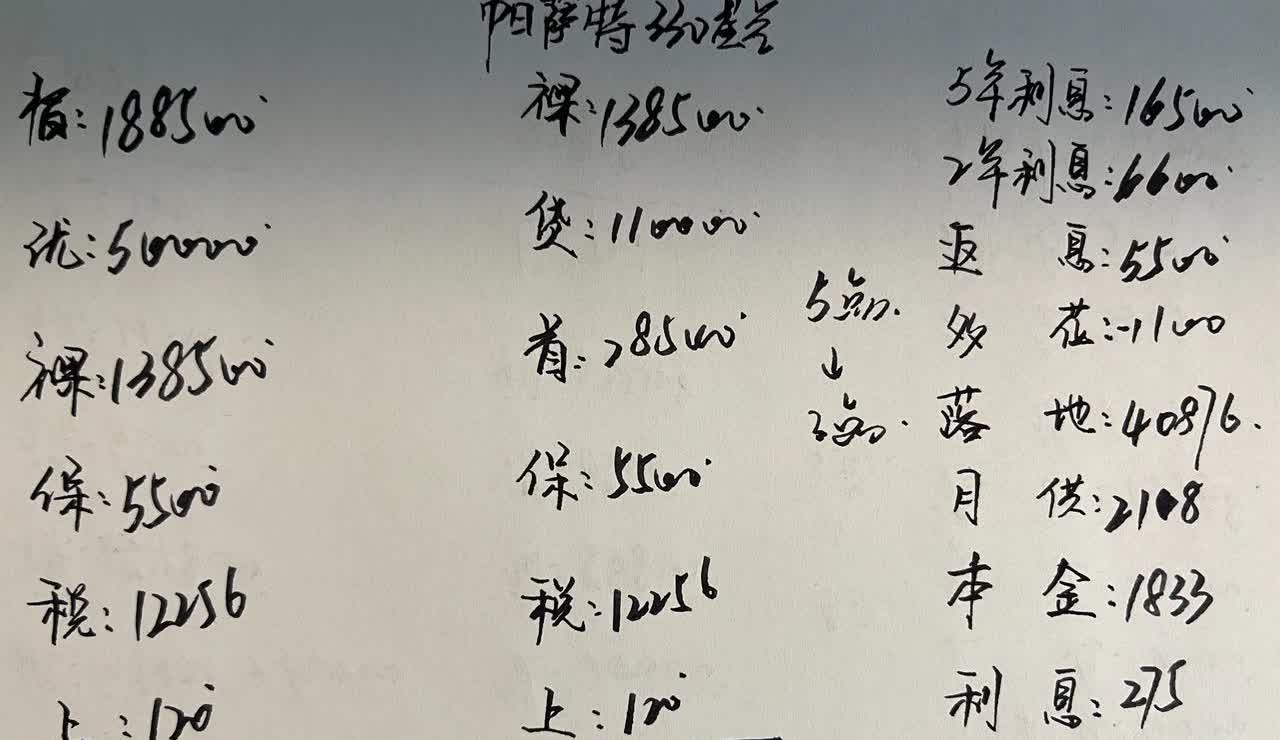 帕萨特330豪华
指:188500
优:50000
裸:138500
保:5500
税:12256
上:120
裸:138500
贷:110000
首:28500
保:5500
税:12256
上:120
5年利息:16500
2年利息:6600
返息:5500
多花:-1100
落地:40876.
月供:2108
本金:1833
利息:275
5点
↓
3点